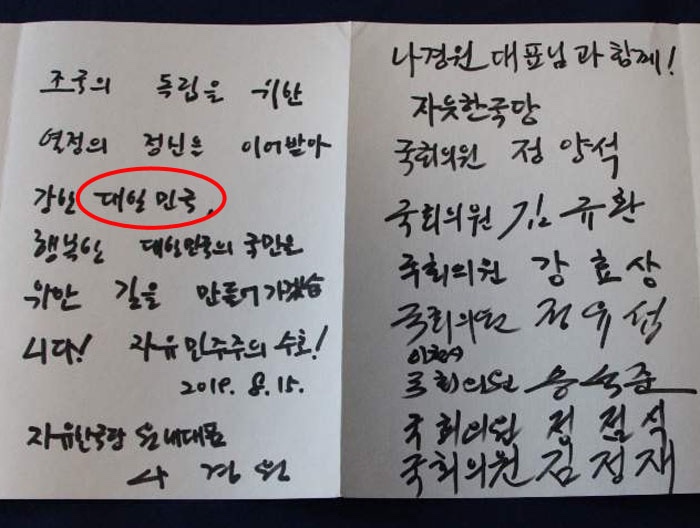 조국의 독립을 위한
열정의 정신을 이어받아
강한 대일민국,
행복한 대한민국의 국민을
위한 길을 만들어가겠습
니다! 자유 민주주의 수호!
2019. 8. 15.
자유한국당 원내대표
나 경 원
나경원 대표님과 함께!
자유한국당
국회의원 정 양 석
국회의원 김 규 환
국회의원 강 효 상
국회의원 정 유 섭
국회의원 송 석 준
국회의원 정 점 식
국회의원 김 정 재